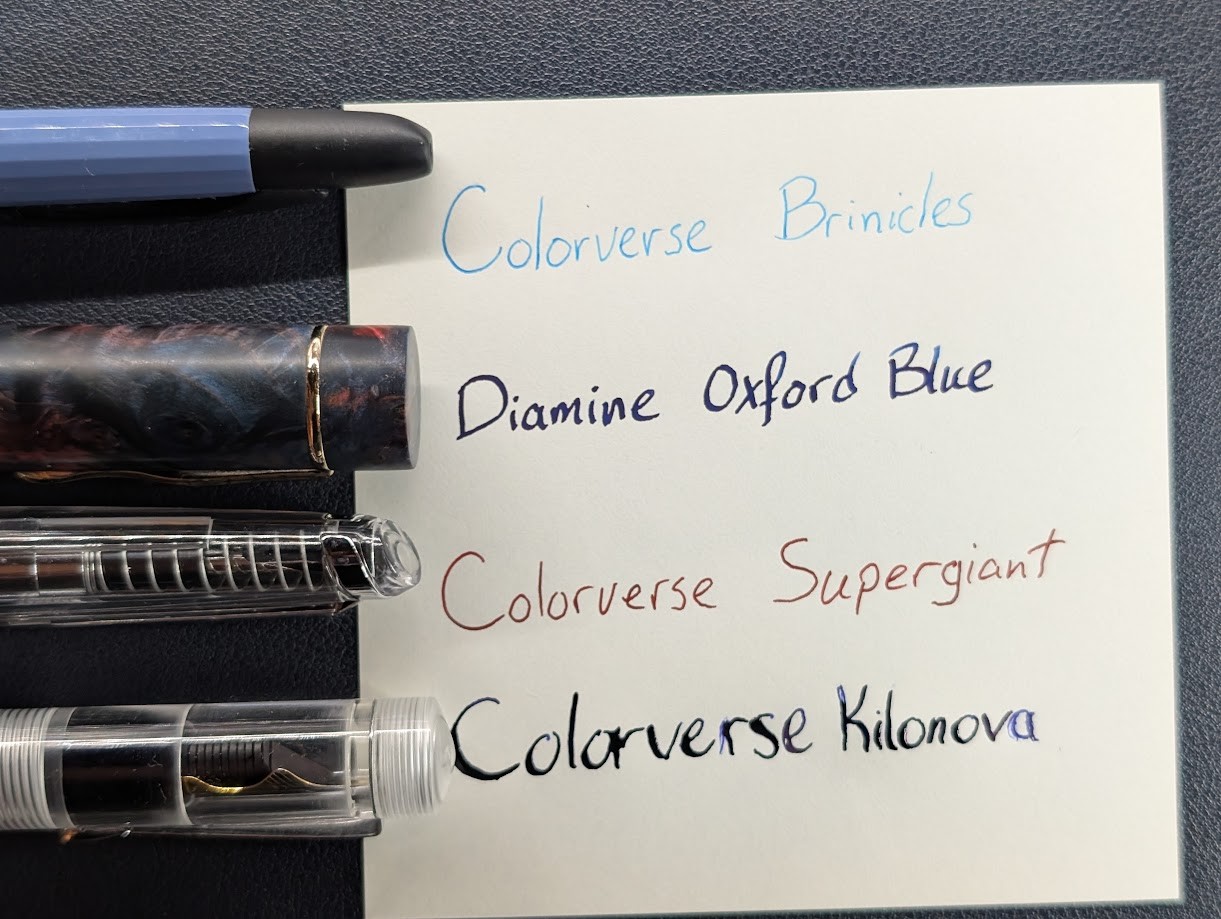 Colorverse Brinicles
Diamine Oxford Blue
Colorverse Supergiant
Colorverse Kilonova